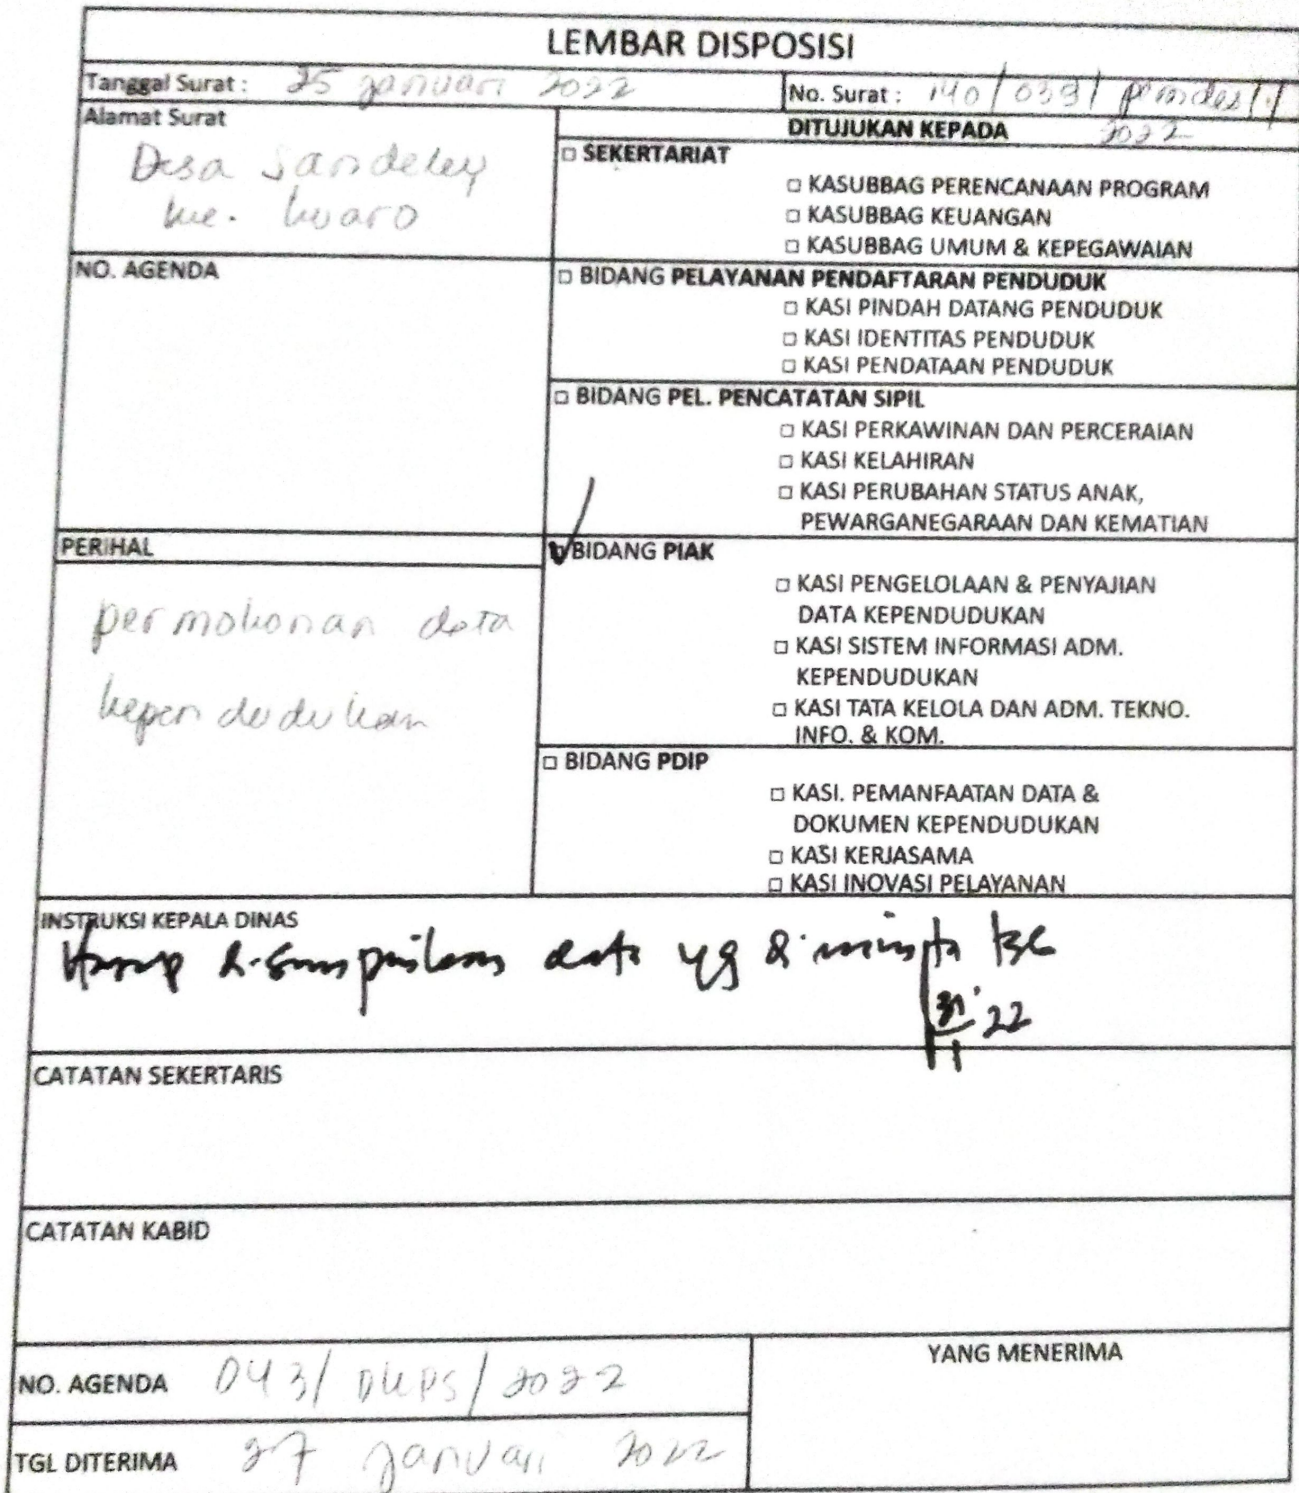 LEMBAR DISPOSISI
Tanggal Surat : 25 januari 2022
No. Surat : 140/039/pemdes/1/
2022
Alamat Surat
Desa
DITUJUKAN KEPADA
□ SEKERTARIAT
□ KASUBBAG PERENCANAAN PROGRAM
□ KASUBBAG KEUANGAN
□ KASUBBAG UMUM & KEPEGAWAIAN
NO. AGENDA
□ BIDANG PELAYANAN PENDAFTARAN PENDUDUK
□ KASI PINDAH DATANG PENDUDUK
□ KASI IDENTITAS PENDUDUK
□ KASI PENDATAAN PENDUDUK
□ BIDANG PEL. PENCATATAN SIPIL
□ KASI PERKAWINAN DAN PERCERAIAN
□ KASI KELAHIRAN
□ KASI PERUBAHAN STATUS ANAK,
PEWARGANEGARAAN DAN KEMATIAN
PERIHAL
permohonan data
kependudukan
☑ BIDANG PIAK
□ KASI PENGELOLAAN & PENYAJIAN
DATA KEPENDUDUKAN
□ KASI SISTEM INFORMASI ADM.
KEPENDUDUKAN
□ KASI TATA KELOLA DAN ADM. TEKNO.
INFO. & KOM.
□ BIDANG PDIP
□ KASI. PEMANFAATAN DATA &
DOKUMEN KEPENDUDUKAN
□ KASI KERJASAMA
□ KASI INOVASI PELAYANAN
INSTRUKSI KEPALA DINAS
Harap data yg diminta tsb
31/1 '22
CATATAN SEKERTARIS
CATATAN KABID
NO. AGENDA 043/DKPS/2022
YANG MENERIMA
TGL DITERIMA 27 januari 2022